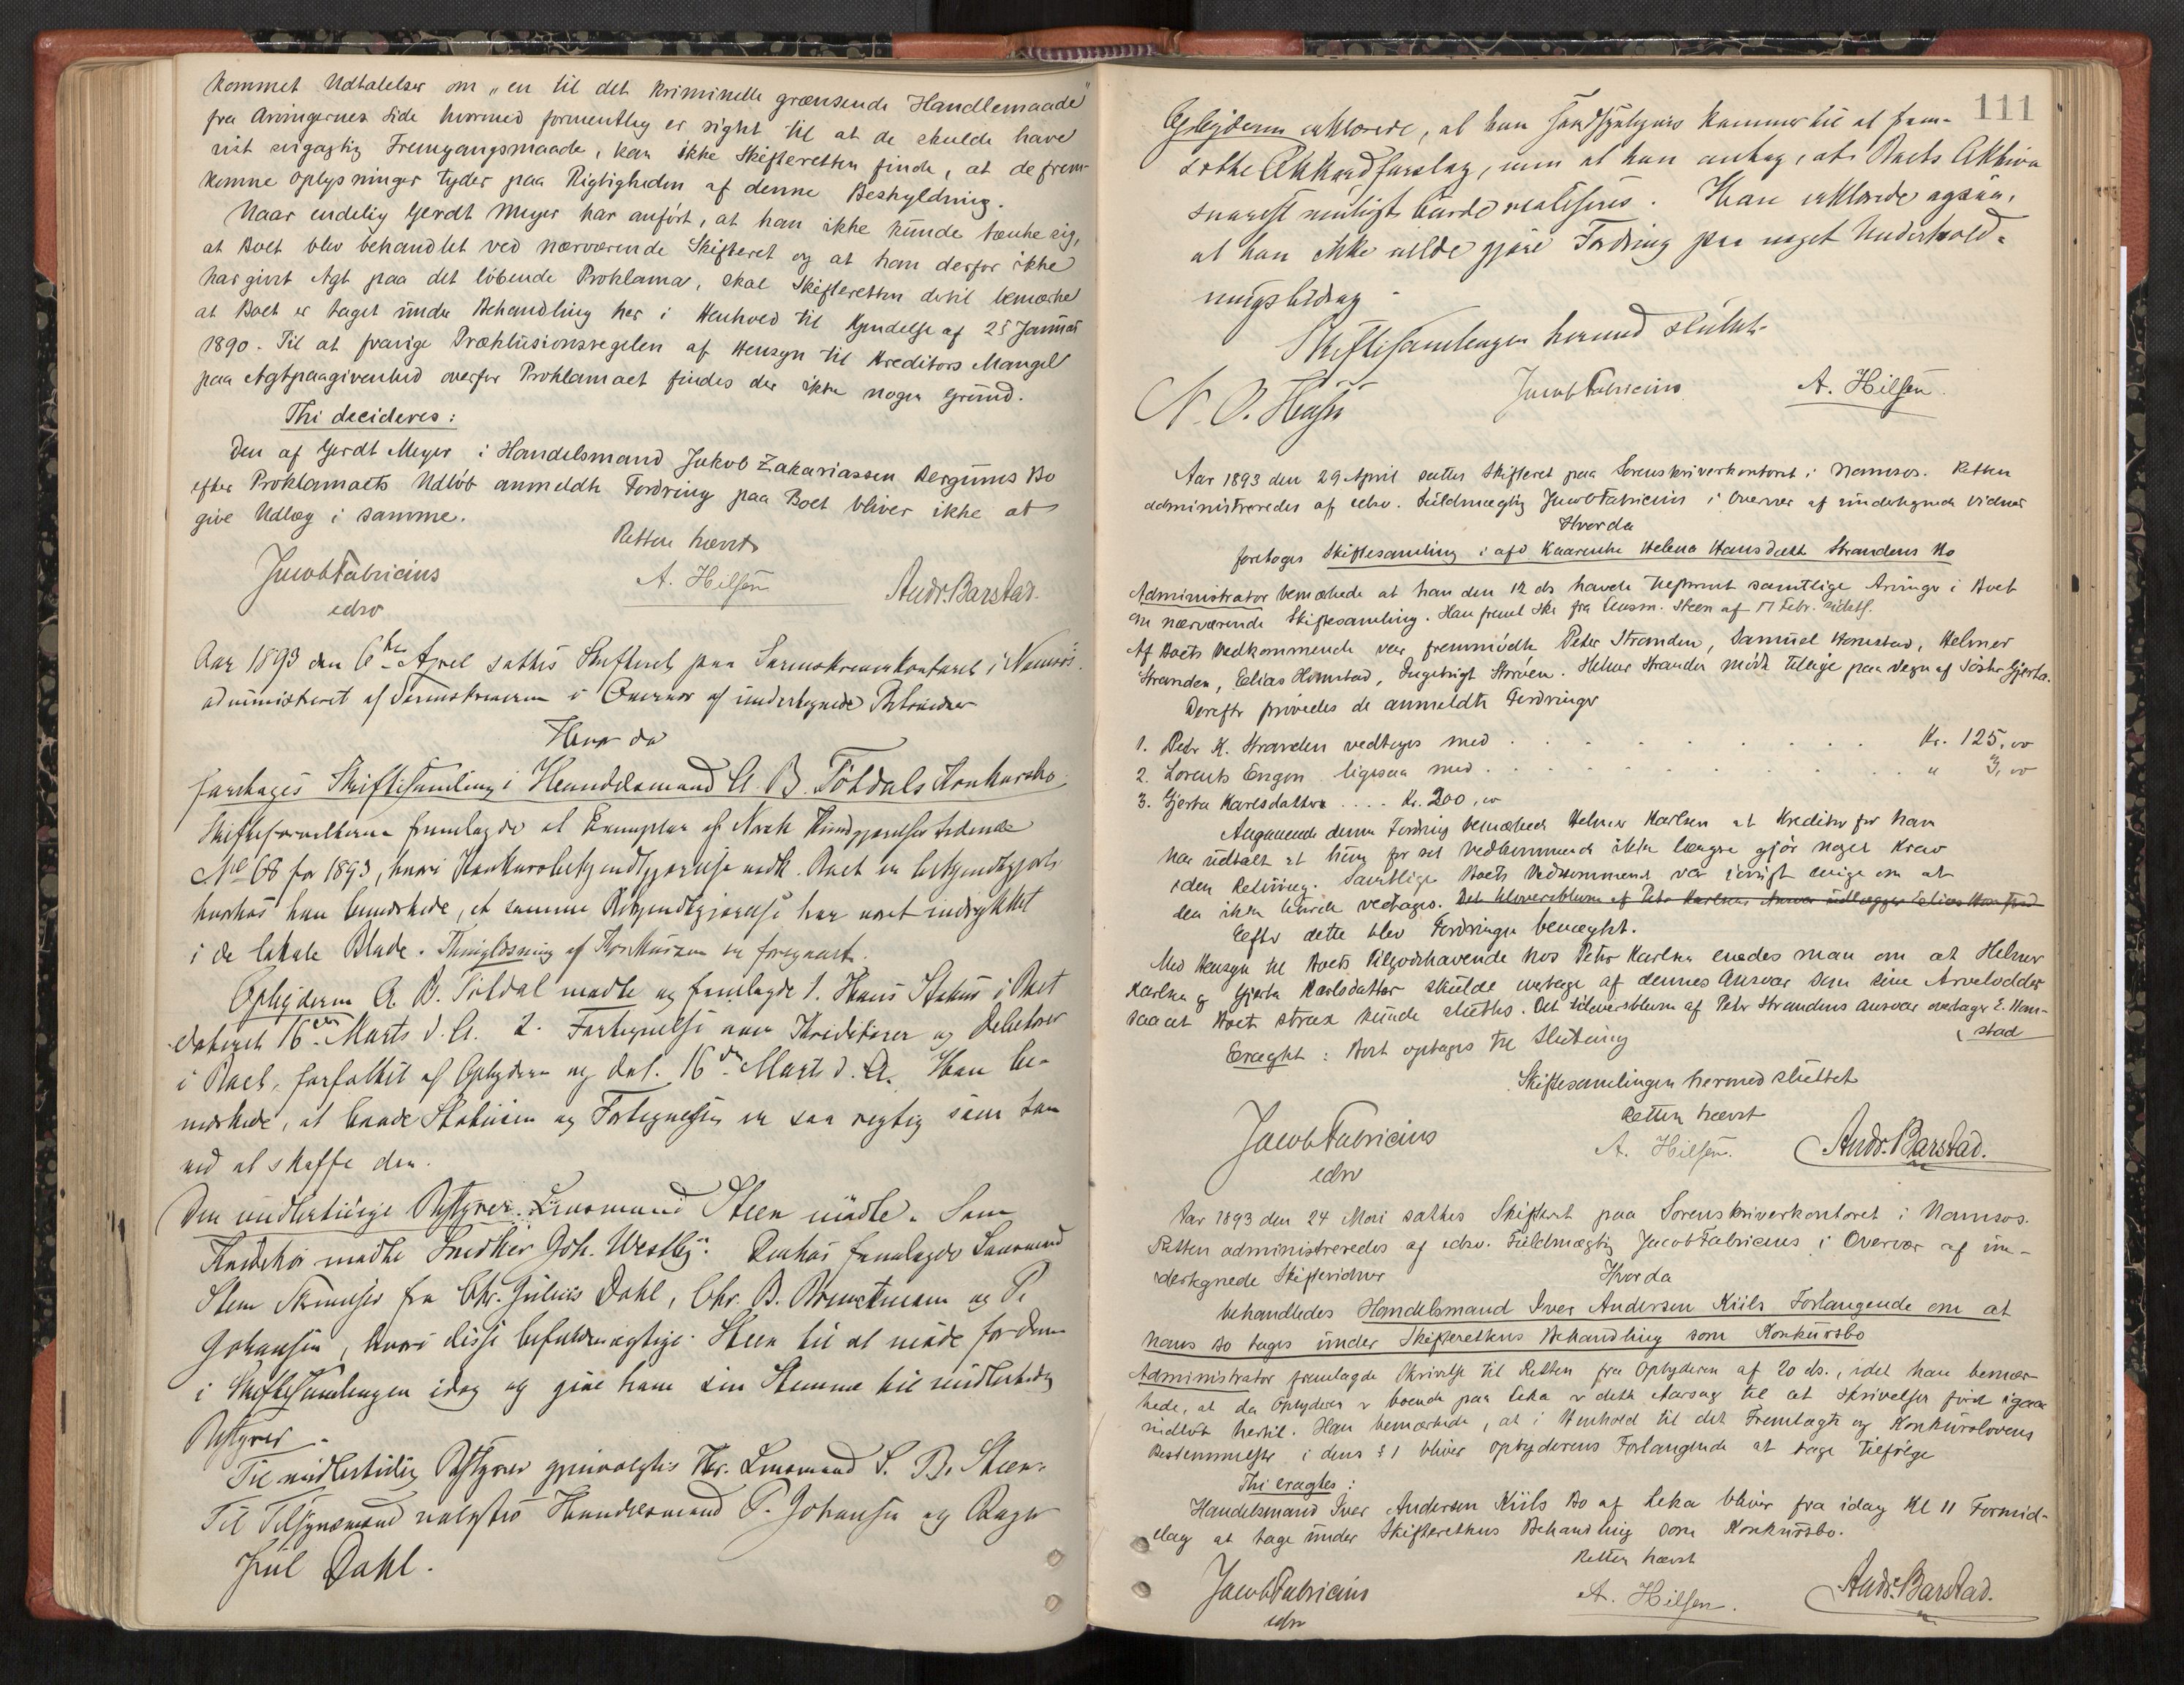 kommet Udtalelser om „en til det kriminelle grænsende Handlemaade"
fra Arvingernes Side hvormed formentlig er sigtet til at de skulde have
vist svigagtig Fremgangsmaade, kan ikke Skifteretten finde, at de frem-
komne Oplysninger tyder paa Rigtigheden af denne Beskyldning.
Naar endelig Gerdt Meyer har anført, at han ikke kunde tænke sig,
at Boet blev behandlet ved nærværende Skifteret og at han derfor ikke
har givet Agt paa det løbende Proklama, skal Skifteretten dertil bemærke
at Boet er taget under Behandling her i Henhold til Kjendelse af 25 Januar
1890. Til at fravige Præklusionsregelen af Hensyn til Kreditors Mangel
paa Agtpaagivenhed overfor Proklamaet findes der ikke nogen Grund.
Thi decideres:
Den af Gerdt Meyer i Handelsmand Jakob Zakariassen Bergums Bo
efter Proklamaets Udløb anmeldte Fordring paa Boet bliver ikke at
give Udlæg i samme.
Retten hævet
Jacob Fabricius A. Hilsen Andr. Barstad.
edsv
Aar 1893 den 6te April sattes Skifteret paa Sorenskriverkontoret i Namsos
administreret af Sorenskriveren i Overvær af undertegnede Retsvidner
Hvor da
foretoges Skiftesamling i Handelsmand A. B. Földals Konkursbo.
Skifteforvalteren fremlagde et Exemplar af Norsk Kundgjørelses tidende
No 68 for 1893, hvori Konkursbekjendtgjørelse vedk. Boet er bekjendtgjort
hvorhos han bemærkede, at samme Bekjendtgjørelse har været indrykket
i de lokale Blade. Thinglæsning af Konkursen er foregaaet.
Opbyderen A. B. Földal mødte og fremlagde 1. Hans Status i Boet
dateret 16de Marts d. A. 2. Fortegnelse over Kreditorer og Debitorer
i Boet, forfattet af Opbyderen og dat. 16de Marts d. A. Han be-
mærkede, at baade Statusen og Fortegnelsen er saa rigtig som han
ved at skaffe den.
Den midlertidige Bestyrer Lensmand Steen mødte. Som
Kreditor mødte Snedker Joh. Westby. Derhos fremlagde Lensmand
Steen Skrivelser fra Chr. Julius Dahl, Chr. B. og P.
Johansen, hvori disse befuldmægtige Steen til at møde for dem
i Skiftesamlingen idag og give ham sin Stemme til midlertidig
Bestyrer.
Til midlertidig Bestyrer gjenvalgtes Hr. Lensmand S. B. Steen.
Til Tilsynsmænd valgtes Handelsmand P. Johansen og Bager
Jul Dahl.
111
Opbyderen erklærede, at han sandsynligvis kommer til at frem-
sætte Akkordforslag, men at han antog, at Boets Aktiva
snarest muligt burde realiseres. Han erklærede ogsaa,
at han ikke vilde gjøre Fordring paa noget Underhold-
ningsbidrag
Skiftesamlingen hermed sluttet
Jacob Fabricius A. Hilsen
Aar 1893 den 29 April sattes Skifteret paa Sorenskriverkontoret i Namsos. Retten
administreredes af edsv. Fuldmægtig Jacob Fabricius i Overvær af undertegnede Vidner
Hvorda
foretoges Skiftesamling i afd Kaarenke Helena Hansdatt Strandens Bo
Administrator bemærkede at han den 12 ds havde tilskrevet samtlige Arvinger i Boet
om nærværende Skiftesamling. Han freml Skr fra Lensm. Steen af 17 Febr. sidstl.
Af Boets Vedkommende var fremmødte Peter Stranden, Samuel Homstad, Helmer
Stranden, Elias Homstad, Ingebrigt Storöen. Helmer Stranden mødte tillige paa Vegne af Söster Gjerta.
Derefter prøvedes de anmeldte Fordringer
1. Peter K. Stranden vedtoges med . . . . Kr. 125,00
2. Lorents Engen ligesaa med . . . . " 3,00
3. Gjerta Karlsdatter . . . . Kr. 200,00
Angaaende denne Fordring bemærkede Helmer Karlsen at Kreditor for ham
har udtalt at hun for sit Vedkommende ikke længre gjör noget Krav
i den Retning. Samtlige Boets Vedkommende var iövrigt enige om at
den ikke burde vedtages. Det tiloversblevne af Peter Karlsens Ansvar udlægges Elias Homstad
Efter dette blev Fordringen benægtet.
Med Hensyn til Boets Tilgodehavende hos Peter Karlsen enedes man om at Helmer
Karlsen og Gjerta Karlsdatter skulde overtage af dennes Ansvar som sine Arvelodder
saa at Boet strax kunde sluttes. Det tiloversblevne af Peter Strandens Ansvar overtager E. Hom-
stad
Eragtet: Boet optages til Slutning
Skiftesamlingen hermed sluttet
Retten hævet
Jacob Fabricius A. Hilsen. Andr. Barstad.
edsv
Aar 1893 den 24 Mai sattes Skifteret paa Sorenskriverkontoret i Namsos.
Retten administreredes af edsv. Fuldmægtig Jacob Fabricius i Overvær af un-
dertegnede Skiftevidner Hvorda
behandledes Handelsmand Iver Andersen Kiils Forlangende om at
hans Bo tages under Skifterettens Behandling som Konkursbo
Administrator fremlagde Skrivelse til Retten fra Opbyderen af 20 ds., idet han bemær-
kede, at da Opbyderen er boende paa Leka er dette Aarsag til at Skrivelsen först igaar
indløb hertil. Han bemærkede, at i Henhold til det Fremlagte og Konkurslovens
Bestemmelse i dens § 1 bliver Opbyderens Forlangende at tage tilfölge
Thi eragtes:
Handelsmand Iver Andersen Kiils Bo af Leka bliver fra idag Kl 11 Formid-
dag at tage under Skifterettens Behandling som Konkursbo.
Retten hævet
Jacob Fabricius A. Hilsen. Andr. Barstad.
edsv